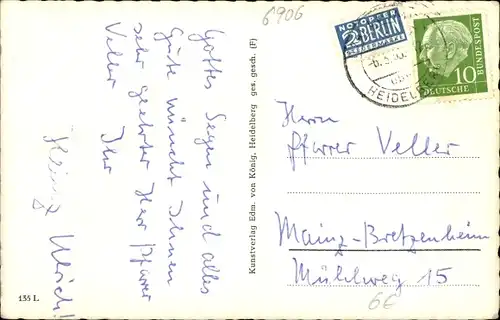 6906
Gottes Segen und alles
Gute wünscht Ihnen
sehr geehrter Herr Pfarrer
Veller Ihr
Heinz Ulrich!
Kunstverlag Edm. von König, Heidelberg ges. gesch. (F)
135 L.
NOTOPFER
2 BERLIN
STEUERMARKE
HEIDELBERG
10
DEUTSCHE
BUNDESPOST
Herrn
Pfarrer Veller
Mainz-Bretzenheim
Mühlweg 15
6€